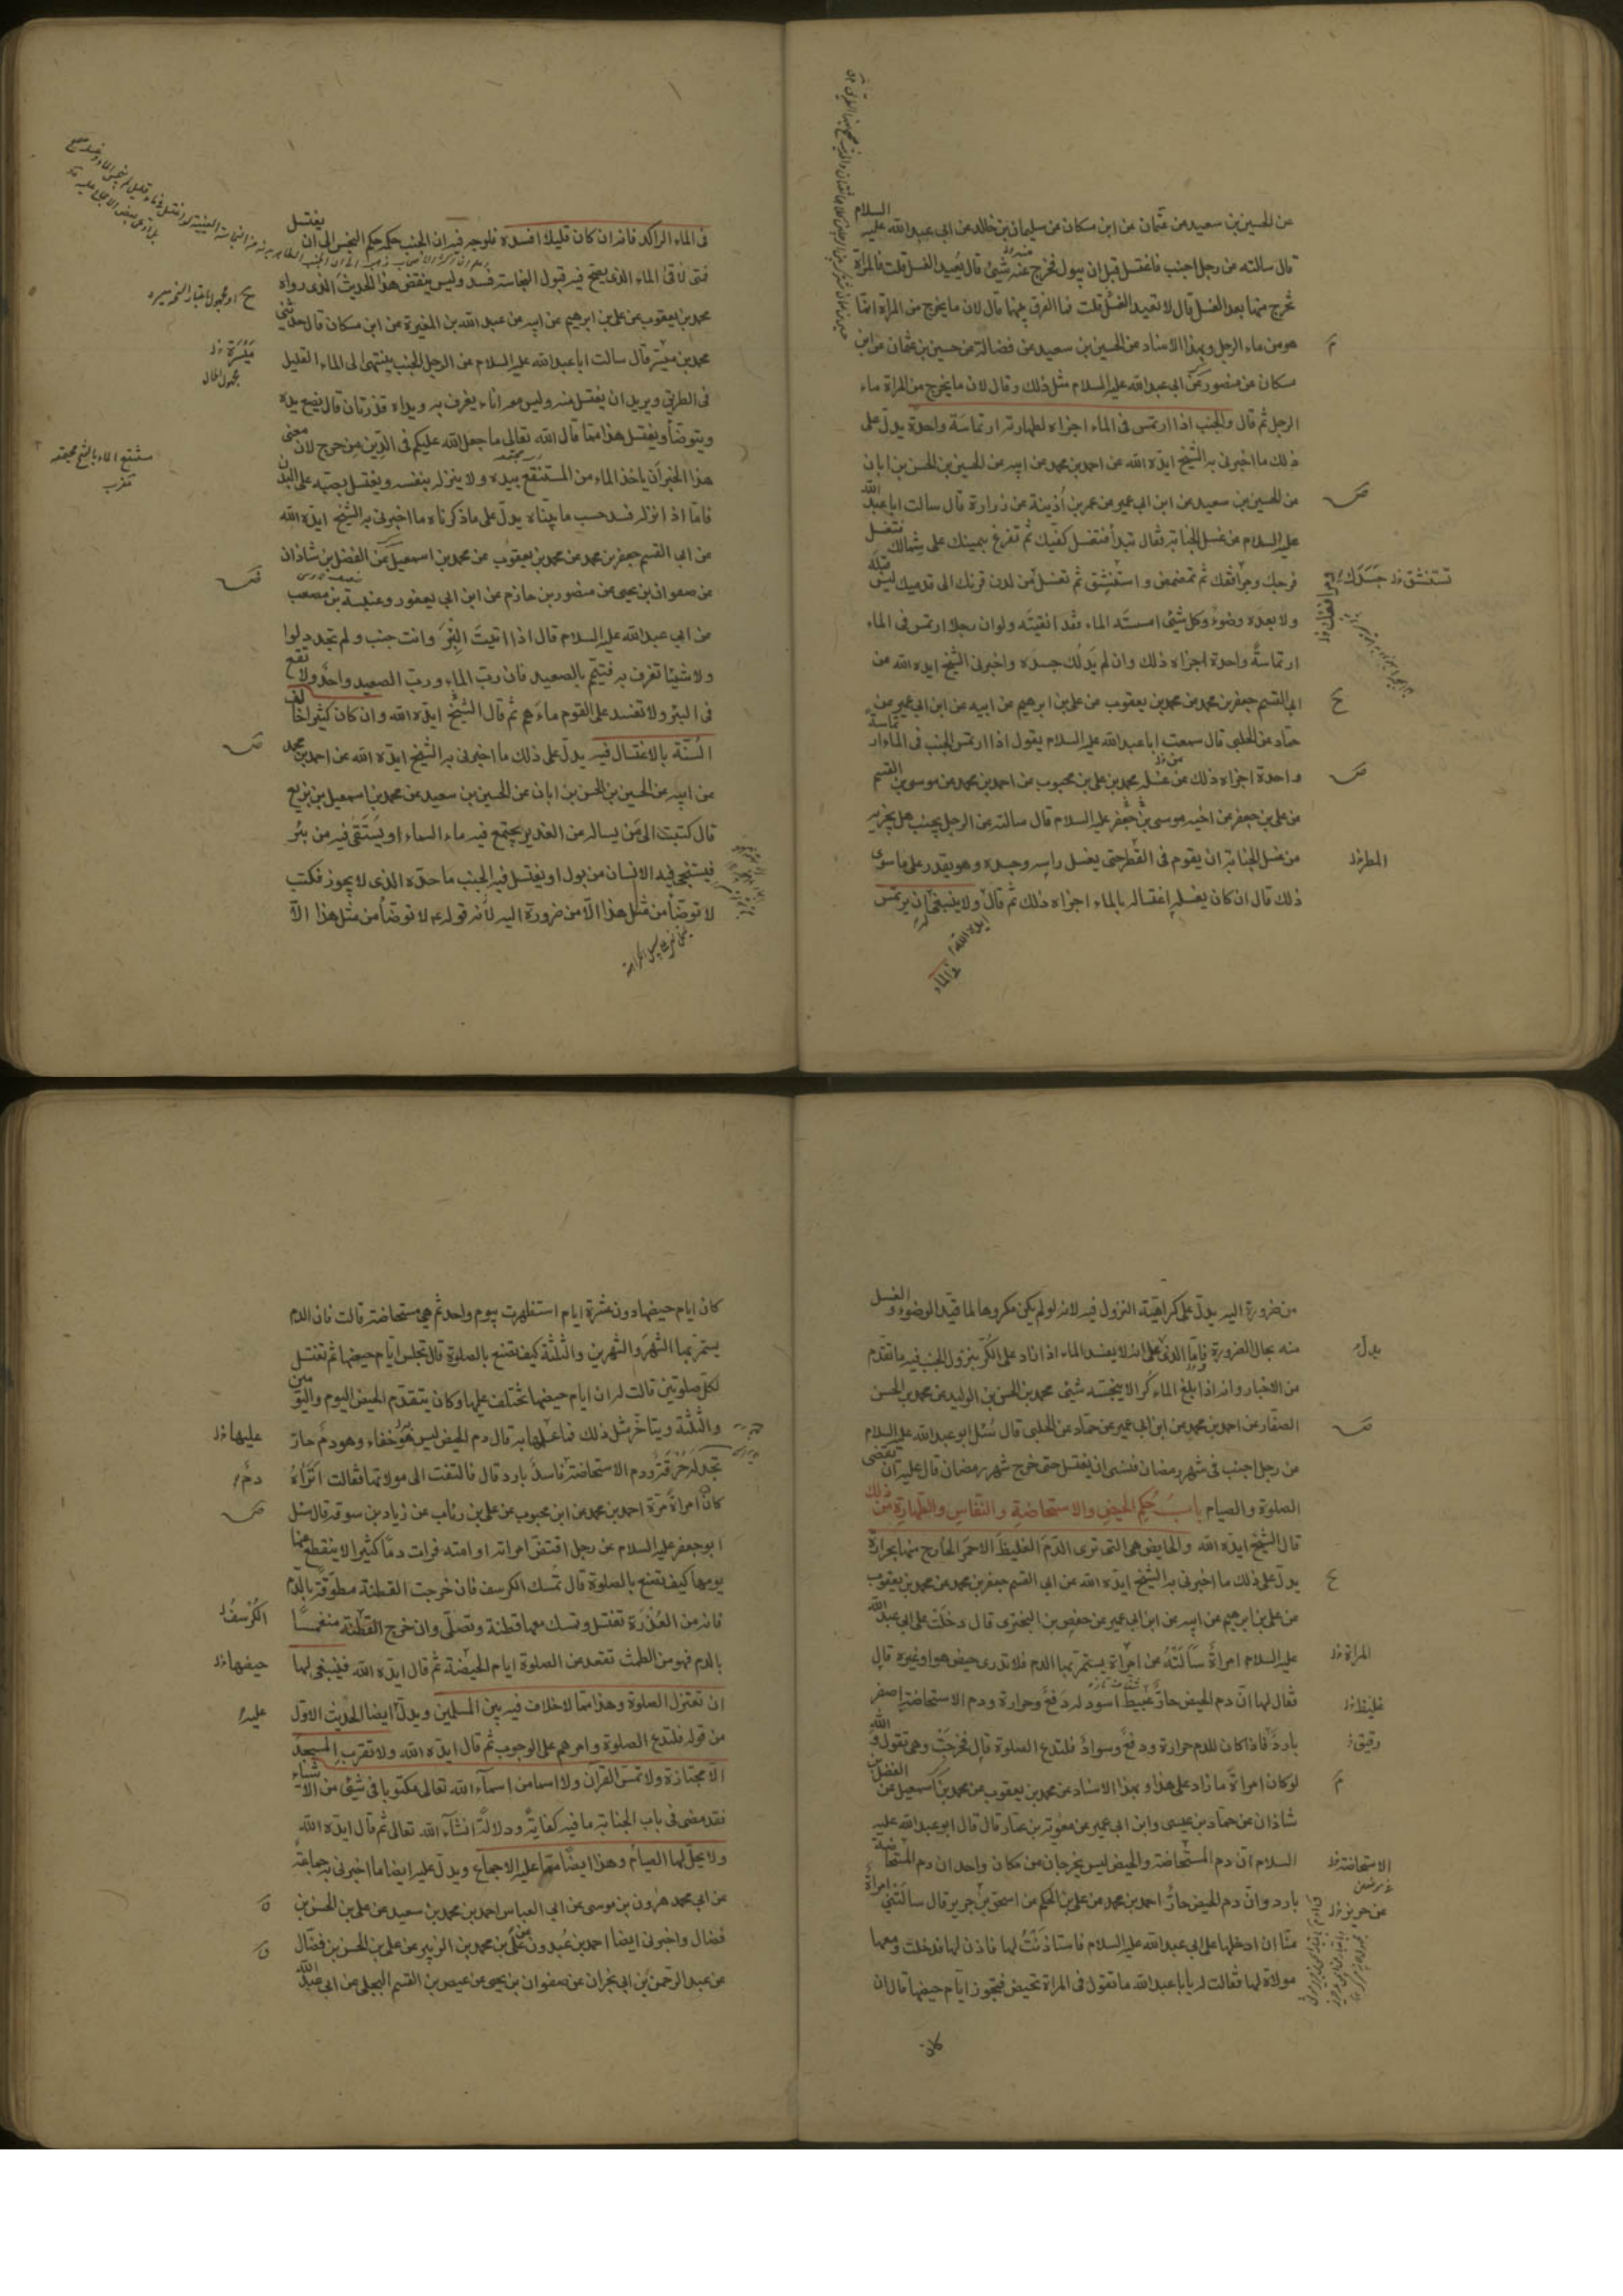 عن الحسين بن سعيد عن عثمان عن ابن مسكان عن سليمان بن خالد عن ابي عبد الله عليه السلام
قال سالته عن رجل اجنب فاغتسل قبل ان يبول فخرج منه شئ قال يُعيد الغسل قلت فالمراة
تخرج منها بعد الغسل قال لا تعيد الغسل قلت فما الفرق بينهما قال لان ما يخرج من المراة انما
هو من ماء الرجل وبهذا الاسناد عن الحسين بن سعيد عن فضالة عن حسين بن عثمان عن ابن
مسكان عن منصور عن ابي عبد الله عليه السلام مثل ذلك وقال لان ما يخرج من المراة ماء
الرجل ثم قال والجنب اذا ارتمس في الماء اجزاه لطهارته ارتماسة واحدة يدل على
ذلك ما اخبرني به الشيخ ايده الله عن احمد بن محمد عن ابيه عن الحسين بن الحسن بن ابان
عن الحسين بن سعيد عن ابن ابي عمير عن عمر بن اُذينة عن زرارة قال سالت ابا عبد الله
عليه السلام عن غسل الجنابة فقال تبدأ فتغسل كفيك ثم تفرغ بيمينك على شمالك فتغسل
فرجك ومرافقك ثم تمضمض واستنشق ثم تغسل من لدن قرنك الى قدميك ليس قبله
ولا بعده وضوء وكل شئ امسسته الماء فقد انقيته ولو ان رجلا ارتمس في الماء
ارتماسة واحدة اجزاه ذلك وان لم يَدلك جسده واخبرني الشيخ ايده الله عن
ابي القسم جعفر بن محمد عن محمد بن يعقوب عن علي بن ابرهيم عن ابيه عن ابن ابي عمير عن
حماد عن الحلبي قال سمعت ابا عبد الله عليه السلام يقول اذا ارتمس الجنب في الماء ارتماسة
واحدة اجزاه ذلك من غسله محمد بن علي بن محبوب عن احمد بن محمد عن موسى بن القسم
عن علي بن جعفر عن اخيه موسى بن جعفر عليه السلام قال سالته عن الرجل يجنب هل يجزيه
من غسل الجنابة ان يقوم في القطر حتى يغسل راسه وجسده وهو يقدر على ما سوى
ذلك قال ان كان يغسله اغتساله بالماء اجزاه ذلك ثم قال ولا ينبغي له ان يرتمس
ايده الله
في الماء
تستنشق
جسدك
المطر
في الماء الراكد فانه ان كان قليلا افسده فلوجه فيه ان الجنب حكمه حكم النجس الى ان يغتسل
فمتى لاقى الماء الذي يصح فيه قبول النجاسة فسد وليس ينقض هذا الحديث الذى رواه
محمد بن يعقوب عن علي بن ابرهيم عن ابيه عن عبد الله بن المغيرة عن ابن مسكان قال حدثني
محمد بن ميسر قال سالت ابا عبد الله عليه السلام عن الرجل الجنب ينتهى الى الماء القليل
في الطريق ويريد ان يغتسل منه وليس معه اناء يغرف به ويداه قذرتان قال يضع يده
ويتوضأ ويغتسل هذا مما قال الله تعالى ما جعل الله عليكم في الدين من حرج لان معنى
هذا الخبر ان ياخذ الماء من المستنقع بيده ولا ينزله بنفسه ويغتسل بصبه على البدن
فاما اذا نزله فسد حسب ما بيناه يدل على ما ذكرناه ما اخبرني به الشيخ ايده الله
عن ابي القسم جعفر بن محمد عن محمد بن يعقوب عن محمد بن اسمعيل عن الفضل بن شاذان
عن صفوان بن يحيى عن منصور بن حازم عن ابن ابي يعفور وعنبسة بن مصعب
عن ابي عبد الله عليه السلام قال اذا اتيتَ البِئرَ وانت جنب ولم تجد دلوا
ولا شيئا تغرف به فتيمم بالصعيد فان رب الماء ورب الصعيد واحد ولا تقع
في البئر ولا تفسد على القوم ماءهم ثم قال الشيخ ايده الله وان كان كثيرا خالف
السُنّة بالاغتسال فيه يدل على ذلك ما اخبرني به الشيخ ايده الله عن احمد بن محمد
عن ابيه عن الحسين بن الحسن بن ابان عن الحسين بن سعيد عن محمد بن اسمعيل بن بزيع
قال كتبت الى مَن يساله عن الغدير يجتمع فيه ماء السماء او يُستقى فيه من بئر
فيستنجى فيه الانسان من بول او يغتسل فيه الجنب ما حده الذى لا يجوز فكتب
لا توضأ من مثل هذا الّا من ضرورة اليه لانه قوله ع لا توضأ من مثل هذا الّا
مَيسَرَة
مجهول الحال
من ضرورة اليه يدل على كراهية النزول فيه لانه لو لم يكن مكروها لما قيد الوضوء والغسل
منه بحال الضرورة فاما الذى على انه لا يفسد الماء اذا زاد على الكُر بنزول الجنب فيه ما تقدم
من الاخبار وانه اذا بلغ الماء كُرا لا ينجسه شئ محمد بن الحسن بن الوليد عن محمد بن الحسن
الصفار عن احمد بن محمد عن ابن ابي عمير عن حماد عن الحلبي قال سُئل ابو عبد الله عليه السلام
عن رجل اجنب في شهر رمضان فنسى ان يغتسل حتى خرج شهر رمضان قال عليه ان يقضى
الصلوة والصيام بابُ حُكم الحيضِ والاستحاضةِ والنفاسِ والطهارةِ مِن ذلك
قال الشيخ ايده الله والحايض هى التى ترى الدّم الغليظَ الاحمَر الخارج منها بحرارة
يدل على ذلك ما اخبرني به الشيخ ايده الله عن ابي القسم جعفر بن محمد عن محمد بن يعقوب
عن علي بن ابرهيم عن ابيه عن ابن ابي عمير عن حفص بن البخترى قال دخلت على ابي عبد الله
عليه السلام امراةٌ سألَتْهُ عن امراة يستمر بها الدم فلا تدرى حيض هو او غيره قال
فقال لها انّ دم الحيض حارٌ عبيطٌ اسود له دَفعٌ وحرارة ودم الاستحاضة اصفر
باردٌ فاذا كان للدم حرارة ودفعٌ وسوادٌ فلتدع الصلوة قال فخرجتْ وهى تقول والله
لو كان امراةً ما زاد على هذا وبهذا الاسناد عن محمد بن يعقوب عن محمد بن اسمعيل عن الفضل بن
شاذان عن حماد بن عيسى وابن ابي عمير عن معوية بن عمار قال قال ابو عبد الله عليه
السلام انّ دم المستحاضة والحيض ليس يخرجان من مكان واحد ان دم المستحاضة
بارد وانّ دم الحيض حارٌ احمد بن محمد عن علي بن الحكم عن اسحق بن جرير قال سالَتني امراة
منّا ان ادخلها على ابي عبد الله عليه السلام فاستاذَنتُ لها فاذن لها فدخلت ومعها
مولاة لها فقالت له يابا عبد الله ما تقول في المراة تحيض فيجوز ايام حيضها قال ان
كان
يدل
المراة
غليظ
رقيق
الاستحاضة
عن حريز
كان ايام حيضها دون عشرة ايام استظهرت بيوم واحد ثم هي مستحاضة قالت فان الدم
يستمر بها الشهرَ والشهرين والثلثة كيف تصنع بالصلوة قال تجلس ايام حيضها ثم تغتسل
لكل صلوتين قالت له ان ايام حيضها تختلف عليها وكان يتقدم الحيض اليوم واليومين
والثلثة ويتاخر مثل ذلك فما علمها به قال دم الحيض ليس به خفاء وهو دم حارّ
تجد له حُرقة ودم الاستحاضة فاسدٌ بارد قال فالتفتت الى مولاتها فقالت اتراهُ
كان امراةً مَرّة احمد بن محمد عن ابن محبوب عن علي بن رئاب عن زياد بن سوقة قال سئل
ابو جعفر عليه السلام عن رجل اقتضّ امراته او امته فرات دمًا كثيرا لا ينقطع عنها
يومها كيف تصنع بالصلوة قال تمسك الكرسف فان خرجت القطنة مطوّقة بالدم
فانه من العُذرة تغتسل وتمسك معها قطنة وتصلّى وان خرج القطنة منغمسًا
بالدم فهو من الطمث تقعد عن الصلوة ايام الحيضة ثم قال ايده الله فينبغى لها
ان تعتزل الصلوة وهذا مما لا خلاف فيه بين المسلمين ويدل ايضا الحديث الاول
من قوله فلتدع الصلوة وامرهم على الوجوب ثم قال ايده الله ولا تقرب المسجد
الّا مجتازة ولا تمسّ القرآن ولا اسما من اسمآء الله تعالى مكتوبا في شئ من الاشياء
فقد مضى في باب الجنابة ما فيه كفايةٌ ودلالةٌ انشآء الله تعالى ثم قال ايده الله
ولا يحلّ لها الصيام وهذا ايضًا مما عليه الاجماع ويدل عليه ايضا ما اخبرني به جماعة
عن ابي محمد هرون بن موسى عن ابي العباس احمد بن محمد بن سعيد عن علي بن الحسن بن
فضال واخبرني ايضا احمد بن عبدون عن علي بن محمد بن الزبير عن علي بن الحسن بن فضال
عن عبد الرحمن بن ابي نجران عن صفوان بن يحيى عن عيص بن القسم البجلي عن ابي عبد الله
عليها
دمٌ
الكُرسُفُ
حيضها
عليه